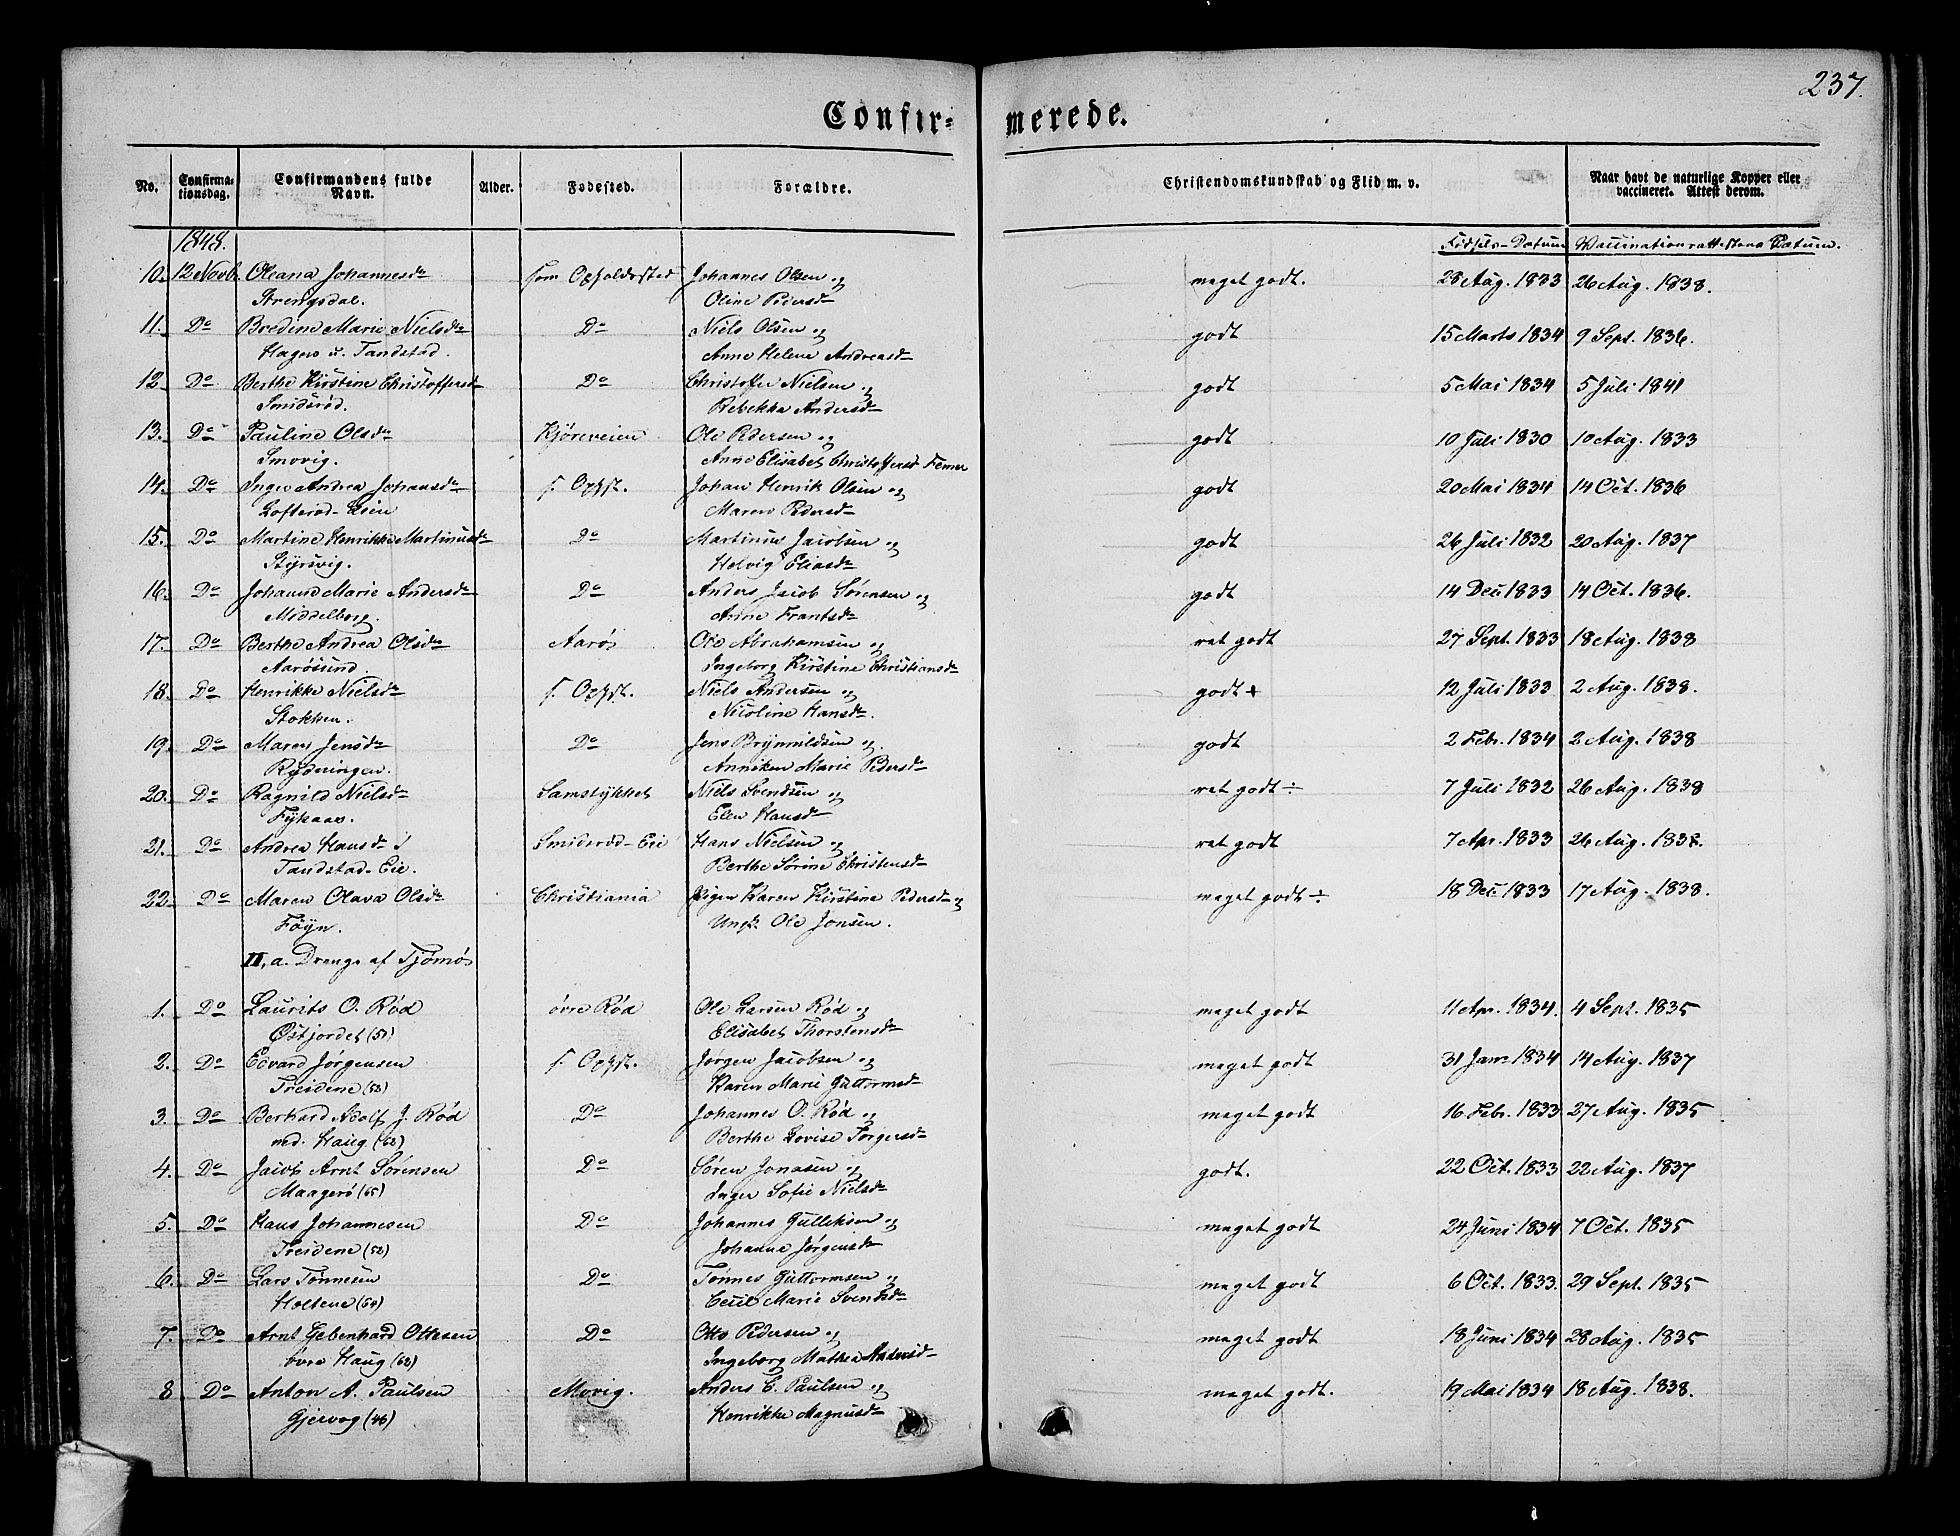 237.
Confir- merede.
No. Confirmationsdag. Confirmandens fulde Navn. Alder. Fødested. Forældre. Christendomskundskab og Flid m. v. Naar havt de naturlige Kopper eller vaccineret. Attest derom.
1848. Fødsels-Datum Vaccinationsattestens Datum.
10. 12 Novb. Oleana Johannesdr som Opholdssted Johannes Olsen og meget godt. 28 Aug. 1833 26 Aug. 1838.
Strengsdal. Oline Pedersdr
11. Do Bredine Marie Nielsdr Do Niels Olsen og godt 15 Marts 1834 9 Sept. 1836.
Hagen u. Tandstad. Anne Helene Andreasdr
12. Do Berthe Kirstine Christoffersdr Do Christoffer Nielsen og godt 5 Mai 1834 5 Juli 1841
Smidsrød. Rebekka Andersdr
13. Do Pauline Olsdr Kjøreveien Ole Pedersen og godt 10 Juli 1830 10 Aug. 1833
Smovig. Anne Elisabet Christoffersd. Femer
14. Do Inger Andrea Johansdr s. Opst. Johan Henrik Olsen og godt 20 Mai 1834 14 Oct. 1836
Lofterød-Eien Maren Pedersdr
15. Do Martine Henrikke Martinusdr Do Martinus Jacobsen og godt 26 Juli 1832 20 Aug. 1837
Styrsvig. Helvig Eliasdr
16. Do Johanne Marie Andersdr Do Anders Jacob Sørensen og godt 14 Dec 1833 14 Oct. 1836.
Middelborg. Anne Frantsdr
17. Do Berthe Andrea Olsdr Aarøs Ole Abrahamsen og ret godt 27 Sept. 1833 18 Aug. 1838
Aarøsund. Ingeborg Kirstine Christiansdr
18. Do Henrikke Nielsdr s. Opst. Niels Andersen og godt + 12 Juli 1833 2 Aug. 1838.
Stokken. Nicoline Hansdr.
19. Do Maren Jensdr Do Jens Brynnildsen og godt 2 Febr. 1834 2 Aug. 1838
Rydningen. Anniken Marie Pedersdr
20. Do Ragnild Nielsdr Samstykket Niels Svendsen og ret godt ÷ 7 Juli 1832 26 Aug. 1838
Fykaas. Elen Hansdr
21. Do Andrea Hansdr i Smidsrød-Eie Hans Nielsen og ret godt 7 Apr. 1833 26 Aug. 1838.
Tandstad-Eie. Berthe Sørine Christensdr
22. Do Maren Olava Olsdr Christiania Pigen Karen Kirstine Pedersdr og meget godt ÷ 18 Dec 1833 17 Aug. 1838.
Føyn. Ungk. Ole Jonsen.
II, a. Drenge af Tjømø
1. Do Laurits O. Rød øvre Rød Ole Larsen Rød og meget godt 11 Apr. 1834. 4 Sept. 1835
Østjordet (51) Elisabet Thorstensdr
2. Do Edvard Jørgensen s. Opst. Jørgen Jacobsen og meget godt 31 Jan. 1834 14 Aug. 1837
Treidene (52) Karen Marie Guttormsdr
3. Do Berhard Adolf J. Rød Do Johannes O. Rød og meget godt 16 Febr. 1833 27 Aug. 1835
ned. Haug (62) Berthe Lovise Torgersdr
4. Do Jacob Arnt Sørensen Do Søren Jonasen og godt. 22 Oct. 1833 22 Aug. 1837
Maagerø (65) Inger Sofie Nielsdr
5. Do Hans Johannesen Do Johannes Gulliksen og meget godt 24 Juni 1834 7 Oct. 1835
Treidene (52) Johanne Jørgensdr
6. Do Lars Tønnesen Do Tønnes Guttormsen og meget godt 6 Oct. 1833. 29 Sept. 1835
Holtene (60) Cecil Marie Svendsdr
7. Do Arnt Gebenhard Ottesen Do Otto Pedersen og meget godt 18 Juni 1834 28 Aug. 1835
øvre Haug (62) Ingeborg Mathea Andersdr
8 Do Anton A. Paulsen Movig. Anders C. Paulsen og meget godt. 19 Mai 1834 18 Aug. 1838.
Gjervog (46) Henrikke Magnusdr